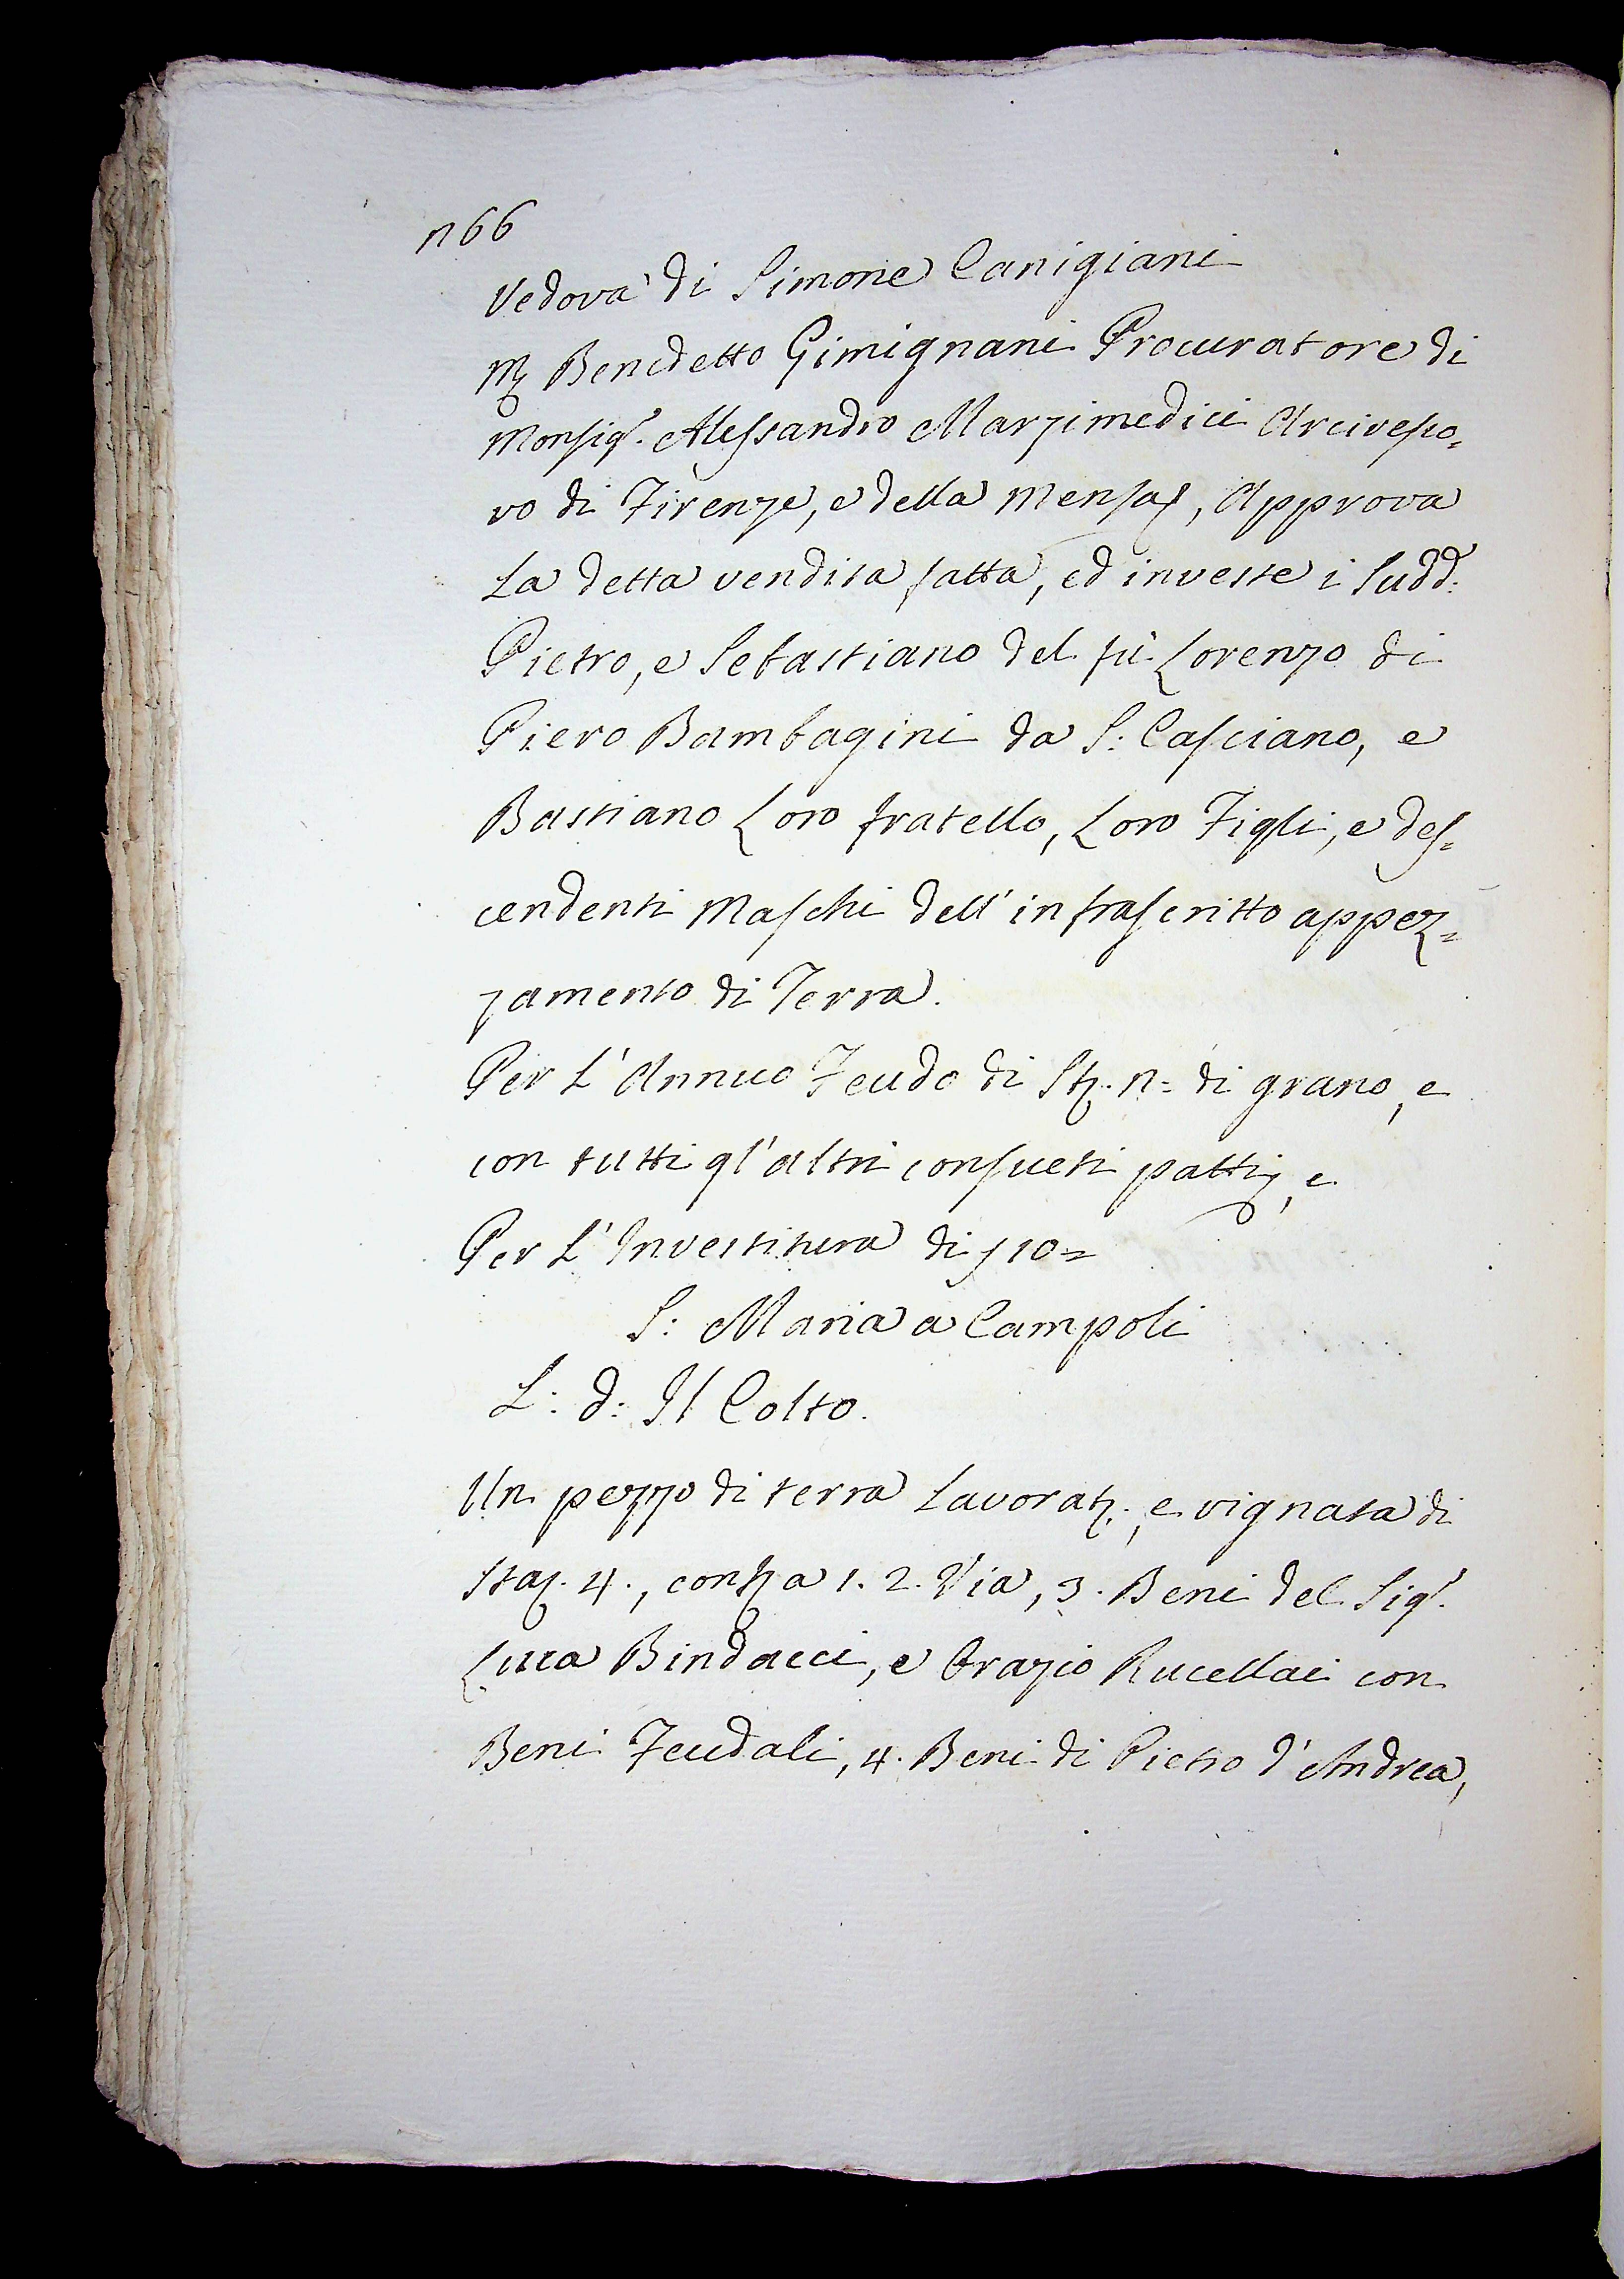 n66
Vedova di Simone Canigiani
Mʒ Benedetto Gimignani Procuratore di
Monsigʳ. Alessandro Marzimedici Arcivesco=
vo di Firenze, e della Mensa, Approva
La detta vendita fatta, ed investe i Sudd:
Pietro, e Sebastiano del fù Lorenzo di
Piero Bambagini da S: Casciano, e
Bastiano Loro fratello, Loro Figli, e des=
cendenti Maschi dell' infrascritto appez=
zamento di Terra.
Per L' Annuo Feudo di Stʒ. n= di grano, e
con tutti gl' altri consueti patti, e
Per L' Investitura di ʃ 10=
S: Maria a Campoli
L: d: Il Colto.
Un pezzo di terra Lavoratʒ. e vignata di
Staʒ. 4., confʒ a 1. 2. Via, 3. Beni del Sigʳ.
Luca Bindacci, e Orazio Rucellai con
Beni Feudali, 4. Beni di Pietro d' Andrea,